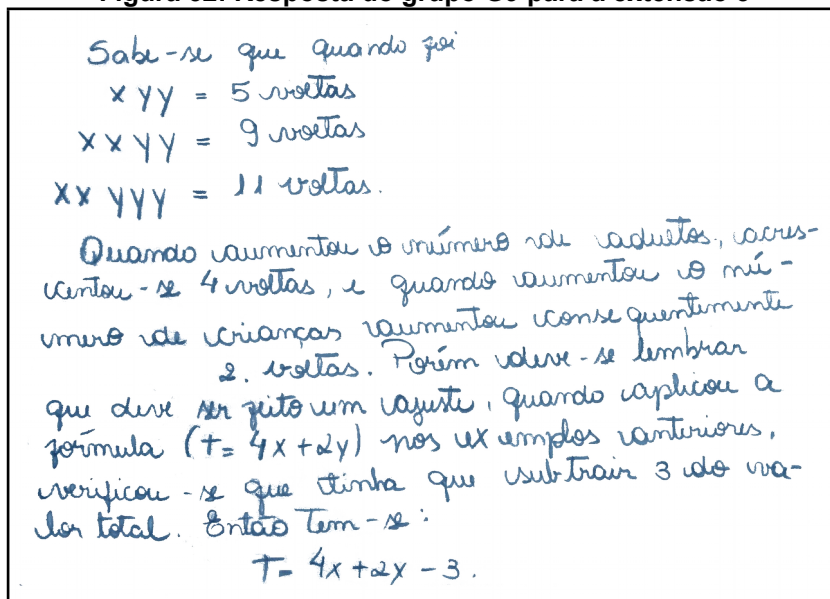 Figura 62: Resposta do grupo G6 para a extensão 6
Sabe-se que quando foi
x y y = 5 voltas
x x y y = 9 voltas
x x y y y = 11 voltas.
Quando aumentou o número de adultos, acres-
centou-se 4 voltas, e quando aumentou o nú-
mero de crianças aumentou consequentimente
2. voltas. Porém deve-se lembrar
que deve ser feito um ajuste, quando aplicou a
fórmula (T= 4x+2y) nos ex emplos anteriores,
verificou-se que tinha que subtrair 3 do va-
lor total. Então Tem-se:
T= 4x+2y-3.